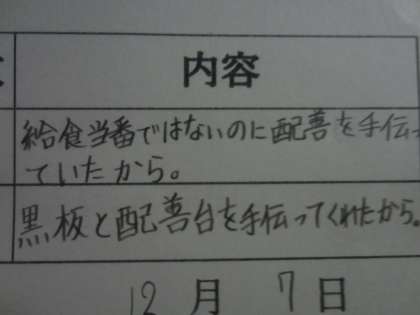 内容
給食当番ではないのに配善を手伝っ
ていたから。
黒板と配善台を手伝ってくれたから。
12月7日